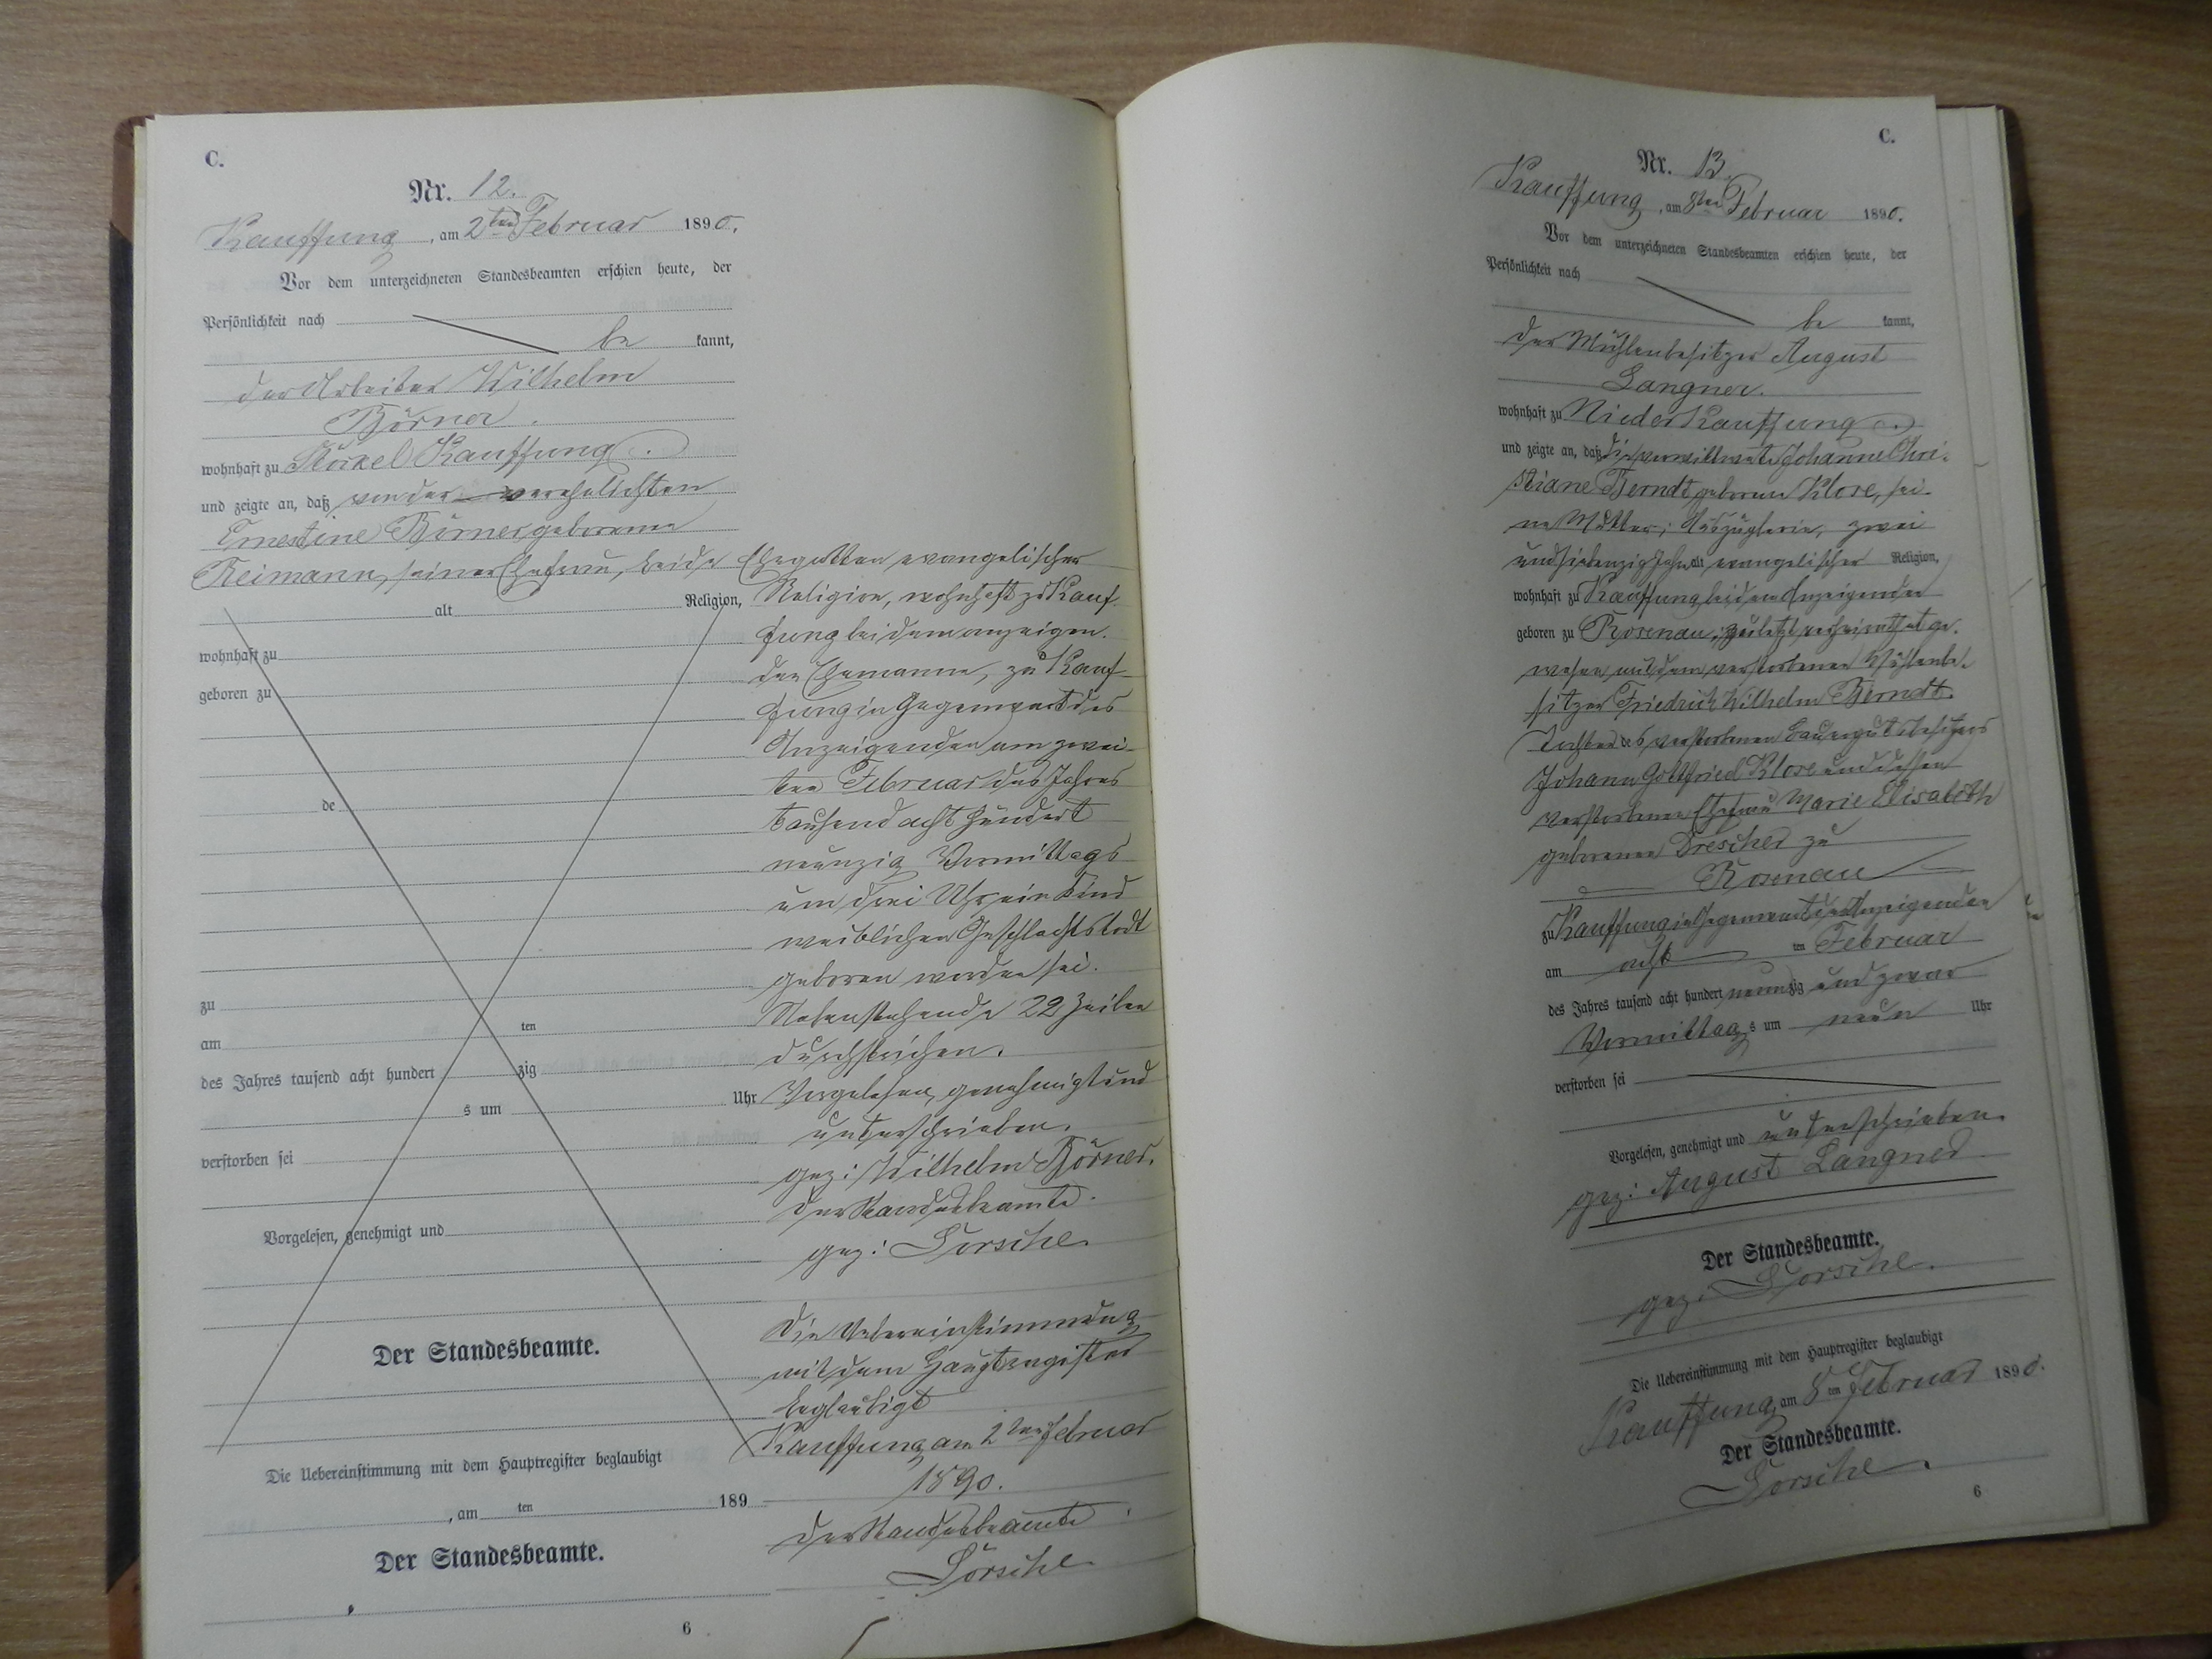 C.
Nr. 12.
Kauffung, am 2ten Februar 1890.
Vor dem unterzeichneten Standesbeamten erschien heute, der
Persönlichkeit nach
be kannt,
der Arbeiter Wilhelm
Börner.
wohnhaft zu Kauffung.
und zeigte an, daß von der verehelichten
Ernestine Börner, geborenen
Reimann, seiner Ehefrau, beide Ehegatten evangelischer
alt Religion,
wohnhaft zu
geboren zu
de
zu
am ten
des Jahres tausend acht hundert zig
s um Uhr
verstorben sei
Vorgelesen, genehmigt und
Der Standesbeamte.
Die Uebereinstimmung mit dem Hauptregister beglaubigt
, am ten 189
Der Standesbeamte.
6
Religion, wohnhaft zu Kauf-
fung bei dem anzeigen-
den Ehemanne, zu Kauf-
fung in Gegenwart des
Anzeigenden am zwei-
ten Februar des Jahres
tausend acht hundert
neunzig Vormittags
um drei Uhr ein Kind
weiblichen Geschlechts todt
geboren worden sei.
Nebenstehende 22 Zeilen
durchstrichen.
Vorgelesen, genehmigt und
unterschrieben.
gez: Wilhelm Börner.
Der Standesbeamte.
gez: Dorschel.
Die Uebereinstimmung
mit dem Hauptregister
beglaubigt
Kauffung am 2ten Februar
1890.
Der Standesbeamte.
C.
Nr. 13.
Kauffung, am 8ten Februar 1890.
Vor dem unterzeichneten Standesbeamten erschien heute, der
Persönlichkeit nach
be kannt,
der Mühlenbesitzer August
Langner.
wohnhaft zu Nieder Kauffung
und zeigte an, daß die verwittwete Johanne Chri-
stiane Berndt geborene Klose, sei-
ne Mutter, Auszüglerin, zwei
und siebenzig Jahr alt, evangelischer Religion,
wohnhaft zu Kauffung bei dem Anzeigenden
geboren zu Rosenau, zuletzt verheirathet ge-
wesen mit dem verstorbenen Mühlenbe-
sitzer Friedrich Wilhelm Berndt.
Tochter des verstorbenen Bauergutsbesitzers
Johann Gottfried Klose und dessen
verstorbenen Ehefrau Marie Elisabeth
geborenen Drescher zu
Rosenau
zu Kauffung in Gegenwart des Anzeigenden
am acht ten Februar
des Jahres tausend acht hundert neunzig und zwar
Vormittags um neun Uhr
verstorben sei
Vorgelesen, genehmigt und unterschrieben.
gez: August Langner
Der Standesbeamte.
gez: Dorschel.
Die Uebereinstimmung mit dem Hauptregister beglaubigt
Kauffung, am 8ten Februar 1890.
Der Standesbeamte.
6